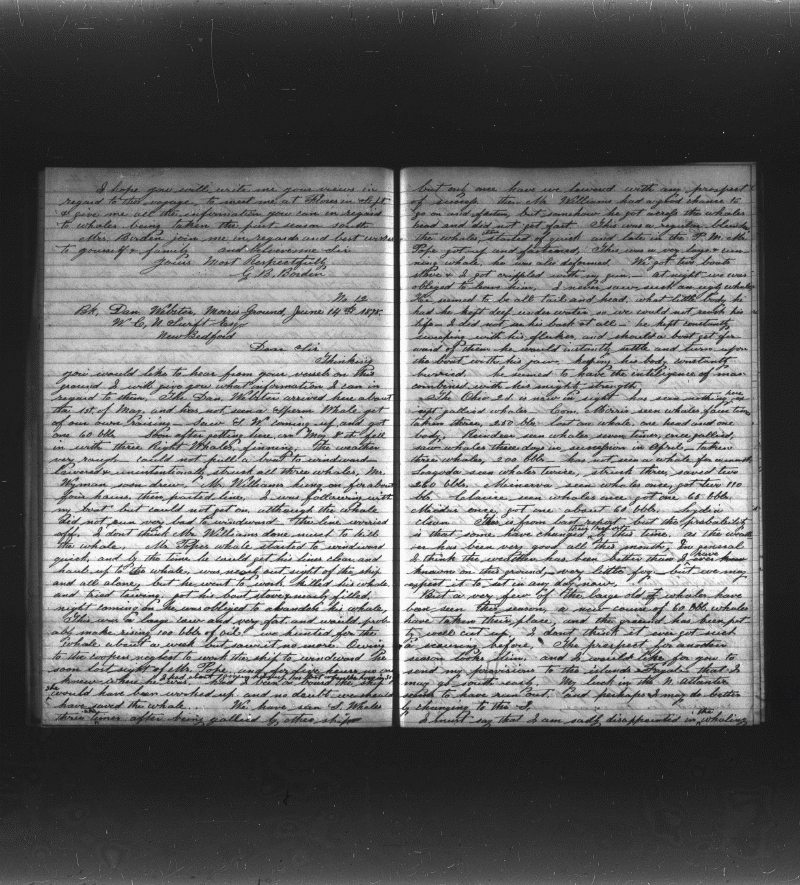 I hope you will write me your views in
regard to this voyage, to meet me at Flores in Sept
& give me all the information you can in regard
to whales being taken the past season south
Mrs Borden join me in regards and best wishes
to yourself & family and Believe me Sir
Yours Most Respectfully
G. B. Borden
No 12
Bk. Dan Webster, Morris Ground, June 14th 1878.
W. C. N. Swift Esq
New Bedford
Dear Sir
Thinking
you would like to hear from your vessels on this
ground I will give you what information I can in
regard to them. The Dan Webster arrived here about
the 1st of May, and has not seen a Sperm Whale yet
of our own raising. Saw S. W. coming up and got
one 60 bbl. Soon after getting here, on May 8 it fell
in with three Right Whales, five A.M. The weather
very rough could not pull a boat to windward.
Lowered & unintentionaly struck all three whales, Mr
Wyman soon drew, Mr William hung on for about
four hours then parted line. I was following with
my boat but could not get on, although the whale
did not run very bad to windward the line worried
off. I dont think Mr William done much to kill
the whale. Mr Popes whale started to windward
quick and by the time he could get his lines clear and
haul up to the whale, was nearly out sight of the ship
and all alone, but he went to work killed his whale
and tried towing, got his boat stove & nearly filled,
night coming on he was obliged to abandon his whale,
This was a large cow and very fat and would prob-
ably make rising 100 bbls of oil. We hunted for the
whale about a week but saw it no more. Owing
to the coopers neglect to work the ship to windward he
soon lost sight of Mr Pope
knew where he was
would have been worked up and no doubt we should
have saved the whale. We have seen S. Whales
three times after being gallied by other ships
but only one have we lowered with any prospect
of success. then Mr Williams had a good chance to
go on and fasten, but somehow he got across the whales
head and did not get fast. This was a regular blunder
the whales started off quick and late in the P.M. Mr
Pope got up and fastened. This was a very large run-
ning whale, he was also deformed. We got two boats
stove & I got crippled with my gun – at night we was
obliged to leave him, I never saw such an ugly whale
He seemed to be all tail and head, what little body he
had he kept deep under water so we could not reach his
life. I did not see his back at all – he kept constantly
sweeping with his flukes, and should a boat get for-
ward of them he would instantly settle and turn upon
the boat with his jaw – keeping his body constantly
burried. he seemed to have the intelligence of man
combined with his might & strength
The Ohio 2d is now in sight has seen nothing ex-
cept gallied whales. Com. Morris seen whales four times
taken three, 250 bbls lost one whale, one head and one
body. Reindeer seen whales seven times, once gallied,
saw whales three days in succession in April – taken
three whales, 200 bbls has not seen a whale for a month
Lagoda seen whales twice, struck three, saved two
260 bbls. Minerva seen whales once, got two 110
bbls. Clarice seen whales once got one 65 bbls.
Mercator once, got one about 60 bbls. Lydia
clean This is from last report, but the probability
is that some have changed by this time. as the weath-
er has been very good all this month, In general
I think the weather has been better than I ever have
known on this ground, very little fog – but we may
expect it to set in any day now.
But a very few of the large old sp whales have
been seen this season, a new course of 60 bbls whales
have taken their place, and the ground has been pret-
ty well cut up. I dont think it ever got such
a scouring before. The prospect for another
season looks slim, and I would like for you to
send my provisions to the islands early so that I
may go south early. My luck in the N. Atlantic
seems to have run out. and perhaps I may do better
by changing to the S.
I must say that I am sadly disappointed in the whaling